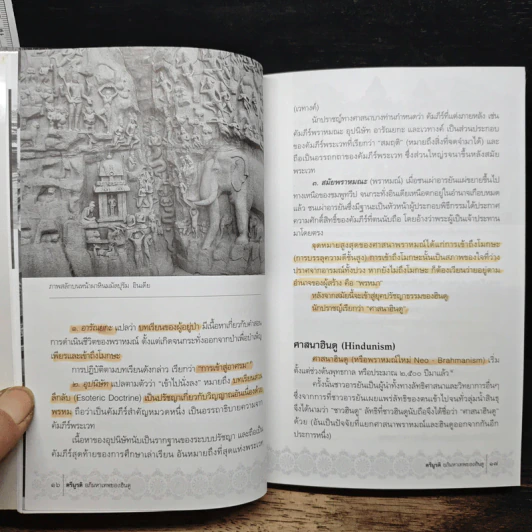 ภาพสลักบนหน้าผาหินมมัลปุรัม อินเดีย
๑. อารัณยกะ แปลว่า บทเรียนของผู้อยู่ป่า มีเนื้อหาเกี่ยวกับคำสอน
การดำเนินชีวิตของพราหมณ์ ตั้งแต่เกิดจนกระทั่งออกจากป่าเพื่อบำเพ็ญ
เพียรและเข้าถึงโมกษะ
การปฏิบัติตามบทเรียนดังกล่าว เรียกว่า "การเข้าสู่อาศรม"
๒. อุปนิษัท แปลตามตัวว่า "เข้าไปนั่งลง" หมายถึง
ลึกลับ (Esoteric Doctrine) เป็นปรัชญาเกี่ยวกับวิญญาณอันมีองค์
พรหม ถือว่าเป็นคัมภีร์สำคัญหมวดหนึ่ง เป็นอรรถาธิบายความจาก
คัมภีร์พระเวท
เนื้อหาของอุปนิษัทนับเป็นรากฐานของระบบปรัชญา และถือเป็น
คัมภีร์สุดท้ายของการศึกษาเล่าเรียน อันหมายถึงที่สุดแห่งพระเวท
๑๖ ตรีมูรติ อภิมหาเทพของฮินดู
(เวทางค์)
นักปราชญ์ทางศาสนาบางท่านกำหนดว่า คัมภีร์ที่แต่งภายหลัง เช่น
คัมภีร์พราหมณะ อุปนิษัท อารัณยกะ และเวทางค์ เป็นส่วนประกอบ
ของคัมภีร์พระเวทที่เรียกว่า "สมฤติ" (หมายถึงสิ่งที่จดจำมาได้) และ
ถือเป็นอรรถกถาของคัมภีร์พระเวท ซึ่งส่วนใหญ่รจนาขึ้นหลังสมัย
พระเวท
๓. สมัยพราหมณะ (พราหมณ์) เมื่อชนเผ่าอารยันแผ่ขยายขึ้นไป
ทางเหนือของชมพูทวีป จนกระทั่งอินเดียเหนือตกอยู่ในอำนาจเกือบหมด
แล้ว ชนเผ่าอารยันซึ่งมีฐานะเป็นหัวหน้าผู้ประกอบพิธีกรรมได้ประกาศ
ความศักดิ์สิทธิ์ของคัมภีร์ที่ตนนับถือ โดยอ้างว่าพระผู้เป็นเจ้าประทาน
มาโดยตรง
จุดหมายสูงสุดของศาสนาพราหมณ์ได้แก่การเข้าถึงโมกษะ
(การบรรลุความดีขั้นสูง) การเข้าถึงโมกษะนั้นเป็นสภาพของใจที่ว่าง
ปราศจากอารมณ์ทั้งปวง หากยังไม่ถึงโมกษะ ก็ต้องเวียนว่ายอยู่ตาม
อำนาจของผู้สร้าง คือ "พรหมา"
หลังจากสมัยนี้จะเข้าสู่ยุคปรัชญาธรรมของฮินดู
นักปราชญ์เรียกว่า "ศาสนาฮินดู"
ศาสนาฮินดู (Hinduism)
ศาสนาฮินดู (หรือพราหมณ์ใหม่ Neo - Brahmanism) เริ่ม
ตั้งแต่ช่วงต้นพุทธกาล หรือประมาณ ๒,๕๐๐ ปีมาแล้ว
ครั้งนั้นชาวอารยันเป็นผู้นำทั้งทางลัทธิศาสนาและวิทยาการอื่นๆ
ซึ่งจากการที่ชาวอารยันเผยแพร่ลัทธิของตนเข้าไปจนทั่วลุ่มน้ำสินธุ
จึงได้นามว่า "ชาวฮินดู" ลัทธิที่ชาวฮินดูนับถือจึงได้ชื่อว่า "ศาสนาฮินดู"
ด้วย (อันเป็นปัจจัยที่แยกศาสนาพราหมณ์และฮินดูออกจากกันอีก
ประการหนึ่ง)
ตรีมูรติ อภิมหาเทพของฮินดู ๑๗